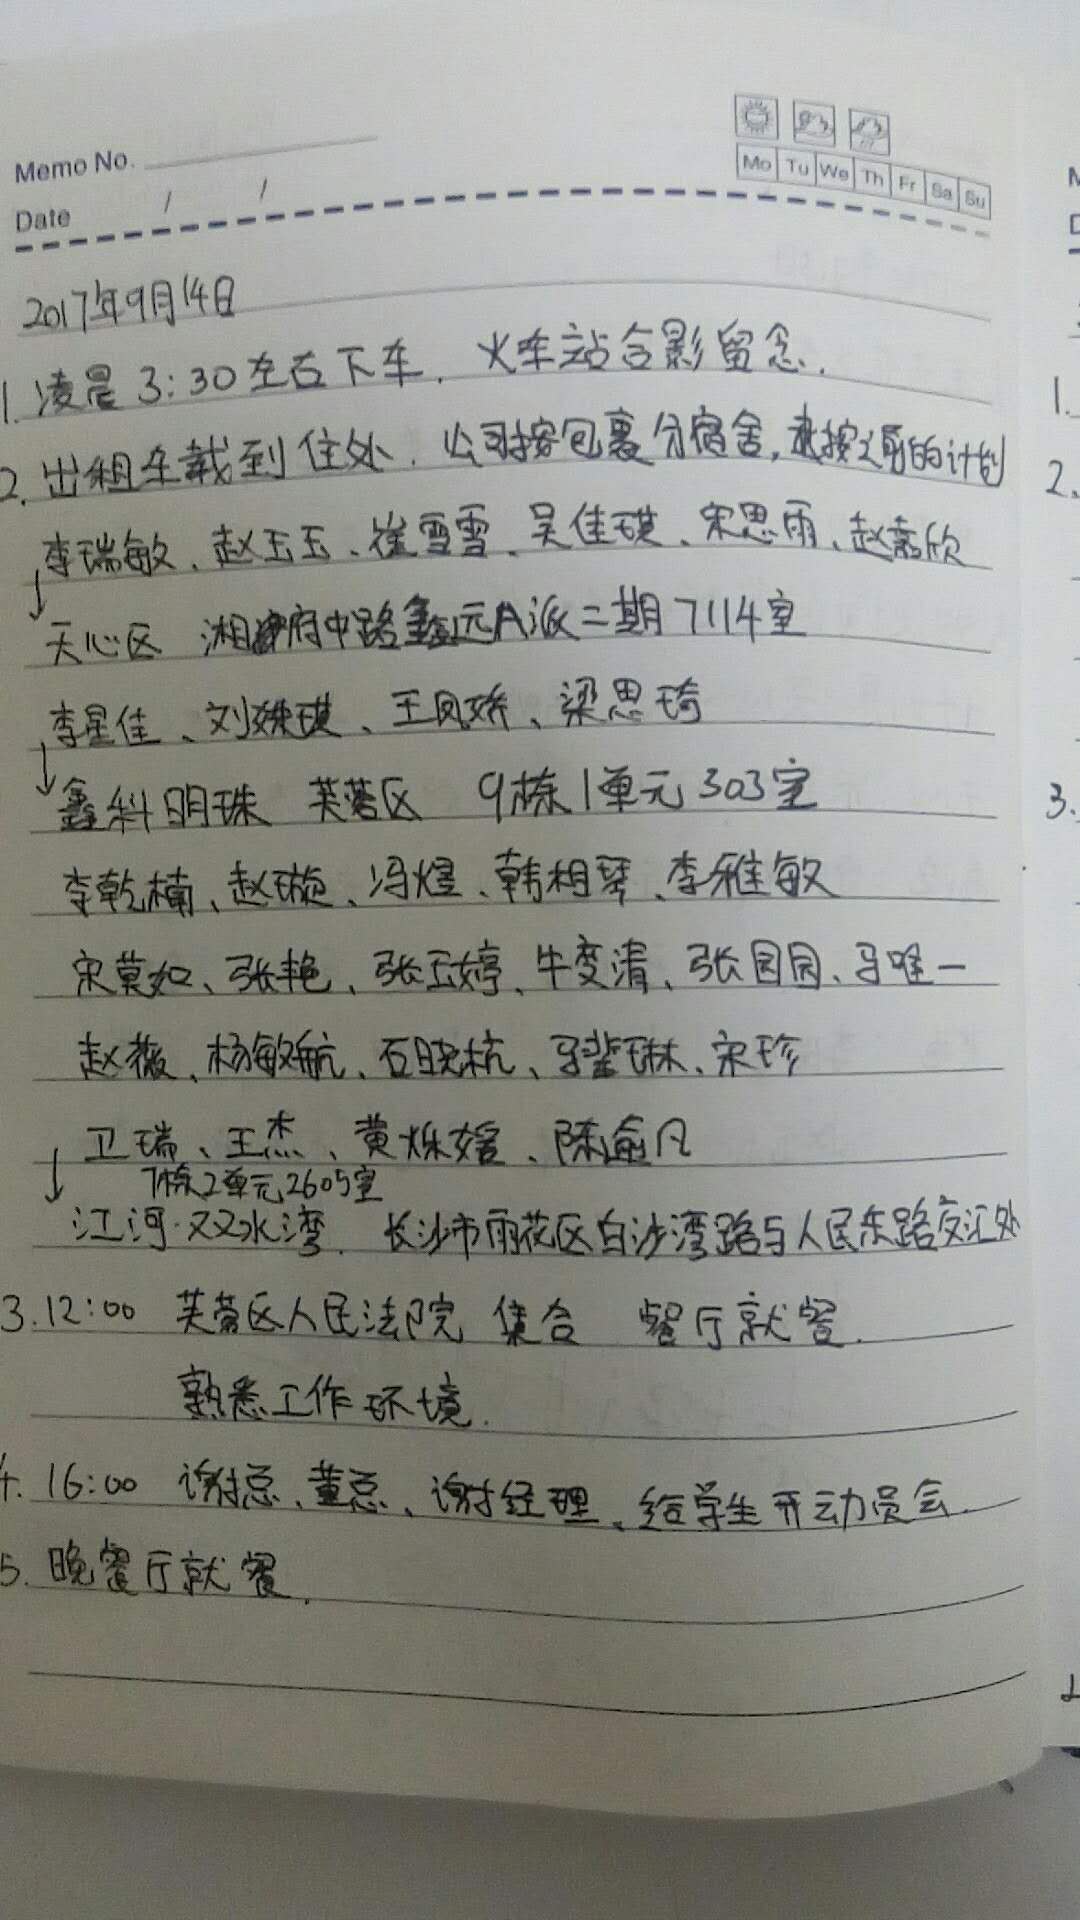 Memo No.
Mo Tu We Th Fr Sa Su
Date / /
2017年9月14日
1. 凌晨3:30左右下车. 火车站合影留念.
2. 出租车载到住处. 公司按包裹分宿舍, 按之前的计划
李瑞敏、赵玉玉、崔雪雪、吴佳琪、宋思雨、赵嘉欣
↓
天心区 湘府中路鑫远A派二期7114室
李星佳、刘姝琪、王凤娇、梁思琦
↓
鑫科明珠 芙蓉区 9栋1单元303室
李乾楠、赵璇、冯煜、韩相琴、李雅敏
宋莫如、张艳、张玉婷、牛变清、张园园、马唯一
赵薇、杨敏航、石晓杭、马琳、宋珍
卫瑞、王杰、黄烁媛、陈逾凡
↓ 7栋2单元2605室
江河·又又水湾. 长沙市雨花区白沙湾路与人民东路交汇处
3. 12:00 芙蓉区人民法院 集合 餐厅就餐.
熟悉工作环境.
4. 16:00 谢总、董总、谢经理、给学生开动员会.
5. 晚餐厅就餐.
1.
2.
3.